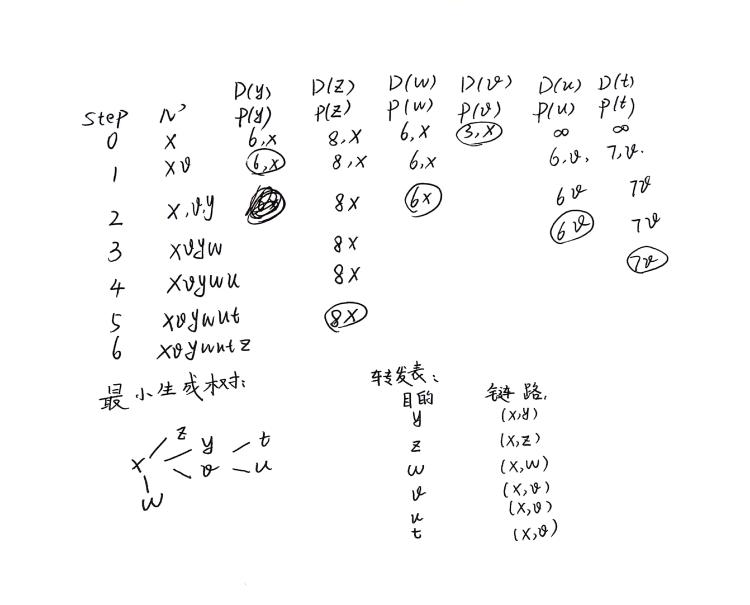 D(y) D(z) D(w) D(v) D(u) D(t)
Step N' P(y) P(z) P(w) P(v) P(u) P(t)
0 x 6,x 8,x 6,x 3,x ∞ ∞
1 xv 6,x 8,x 6,x 6,v, 7,v.
2 x,v,y 8x 6x 6v 7v
3 xvyw 8x 6v 7v
4 xvywu 8x 7v
5 xvywut 8x
6 xvywutz
最小生成树:
z y t
x v u
w
转发表:
目的 链路.
y (x,y)
z (x,z)
w (x,w)
v (x,v)
u (x,v)
t (x,v)